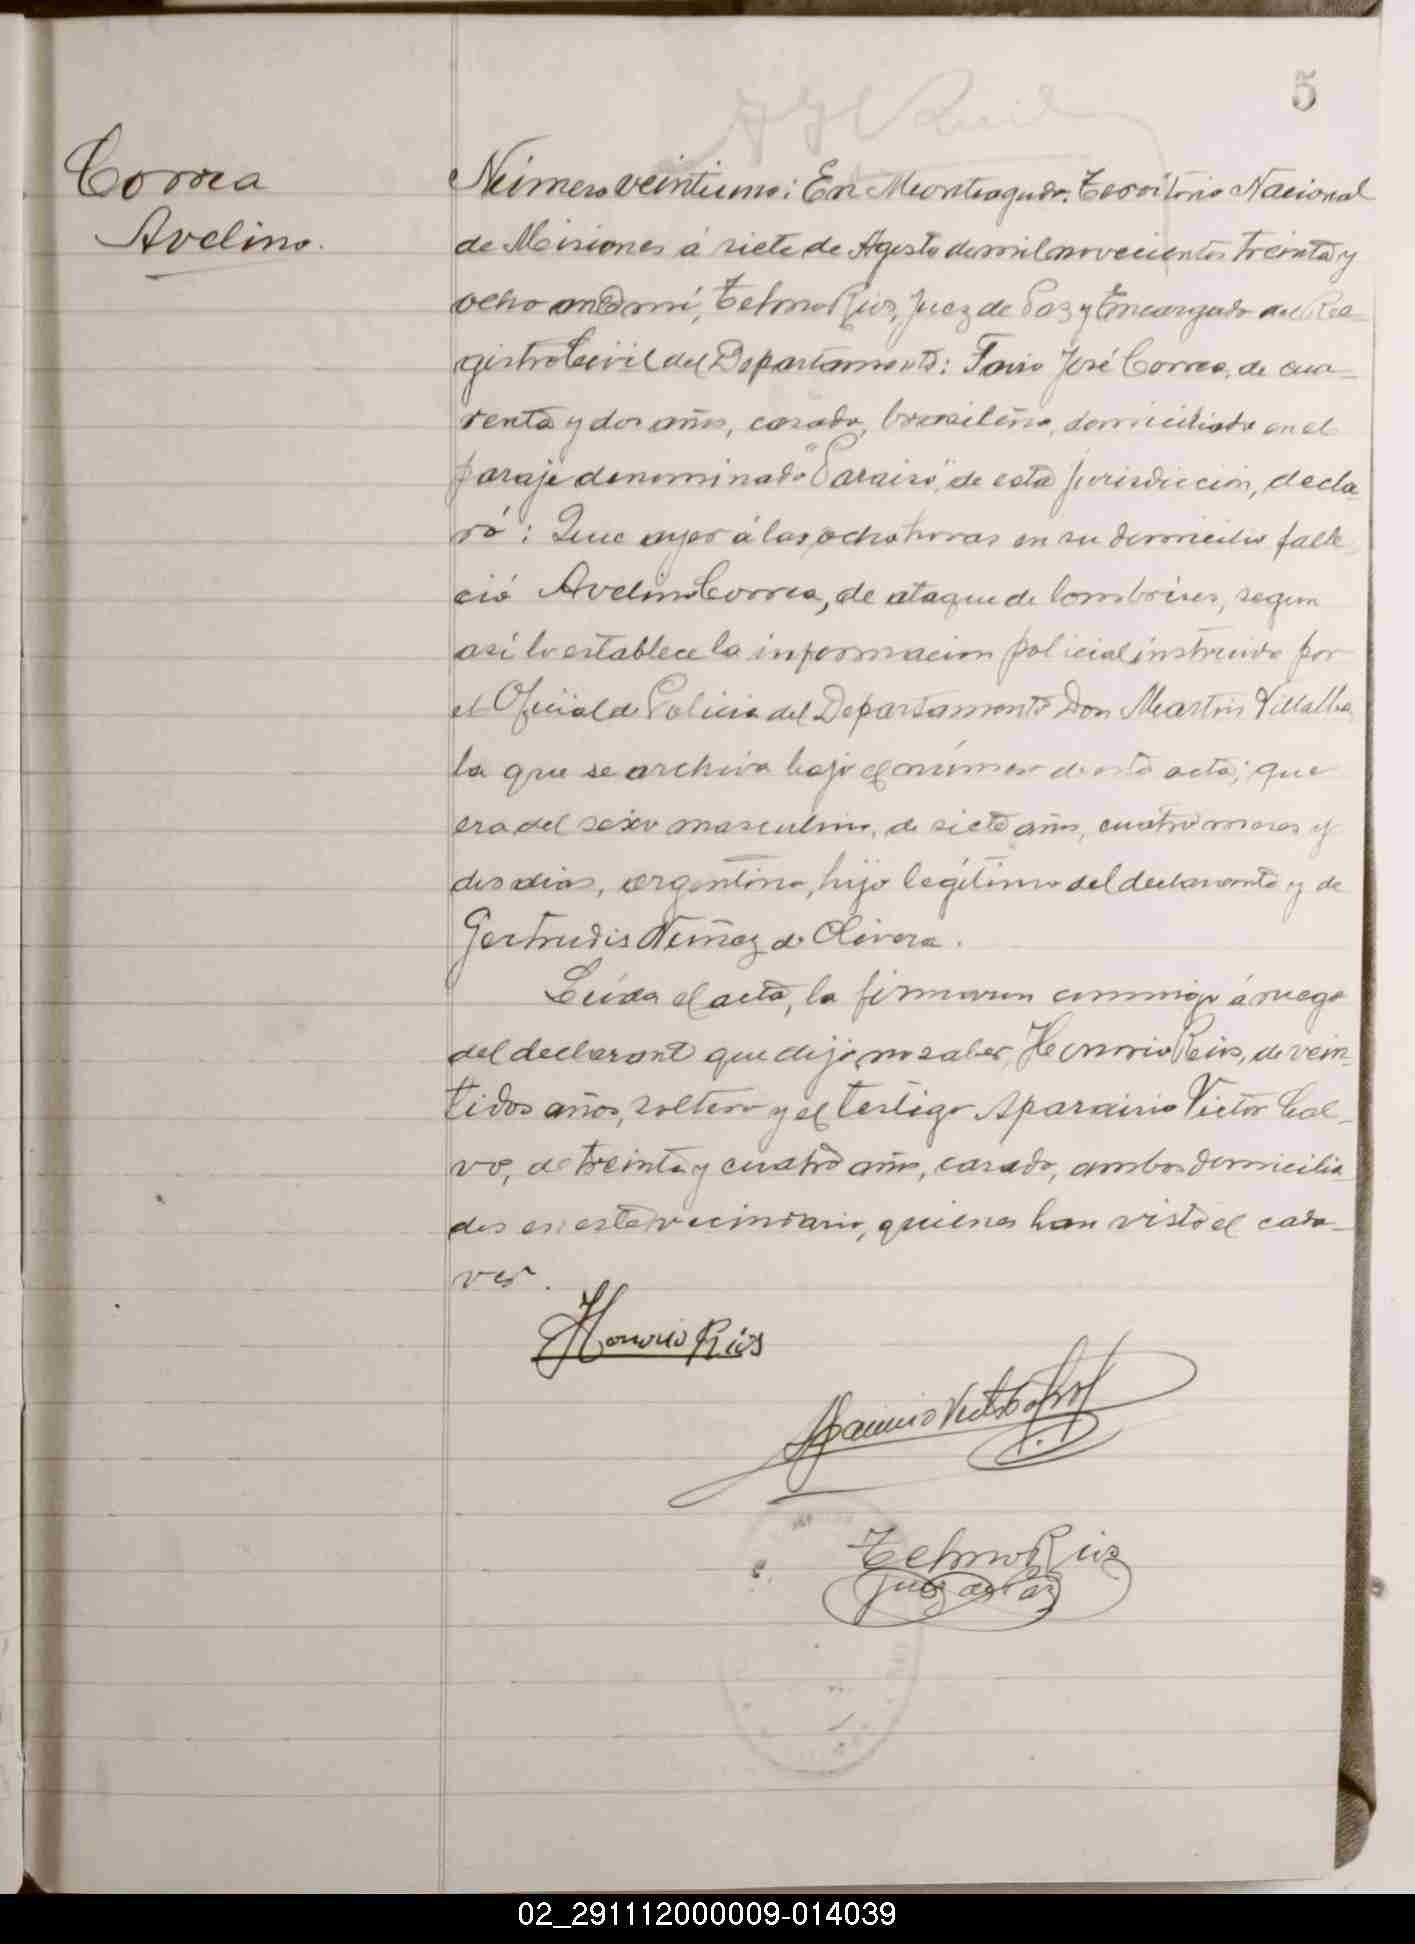 5
Correa
Avelino.
Número veintiuno: En Monteagudo, Territorio Nacional
de Misiones á siete de Agosto de mil novecientos treinta y
ocho ante mí, Telmo Rios, Juez de Paz y Encargado del Re-
gistro Civil del Departamento: José Correa, de cua-
renta y dos años, casado, brasileño, domiciliado en el
paraje denominado "Paraiso", de esta jurisdiccion, decla
ró: Que ayer á las ocho horas en su domicilio falle
ció Avelino Correa, de ataque de lombrices, segun
así lo establece la informacion policial instruida por
el Oficial de Policia del Departamento Don Martin Villalba
la que se archiva bajo el número de esta acta; que
era del sexo masculino, de siete años, cuatro meses y
dos dias, argentino, hijo legítimo del declarante y de
Gertrudis Nuñez de Olivera.
Leída el acta, la firmaron conmigo á ruego
del declarante que dijo no saber, Honorio Rios, de vein-
tidos años, soltero y el testigo Aparicio Victor Cal-
vo, de treinta y cuatro años, casado, ambos domicilia
dos en este vecindario, quienes han visto el cada-
ver.
Honorio Rios
Aparicio Victor Calvo
Telmo Rios
Juez de Paz
02_291112000009-014039